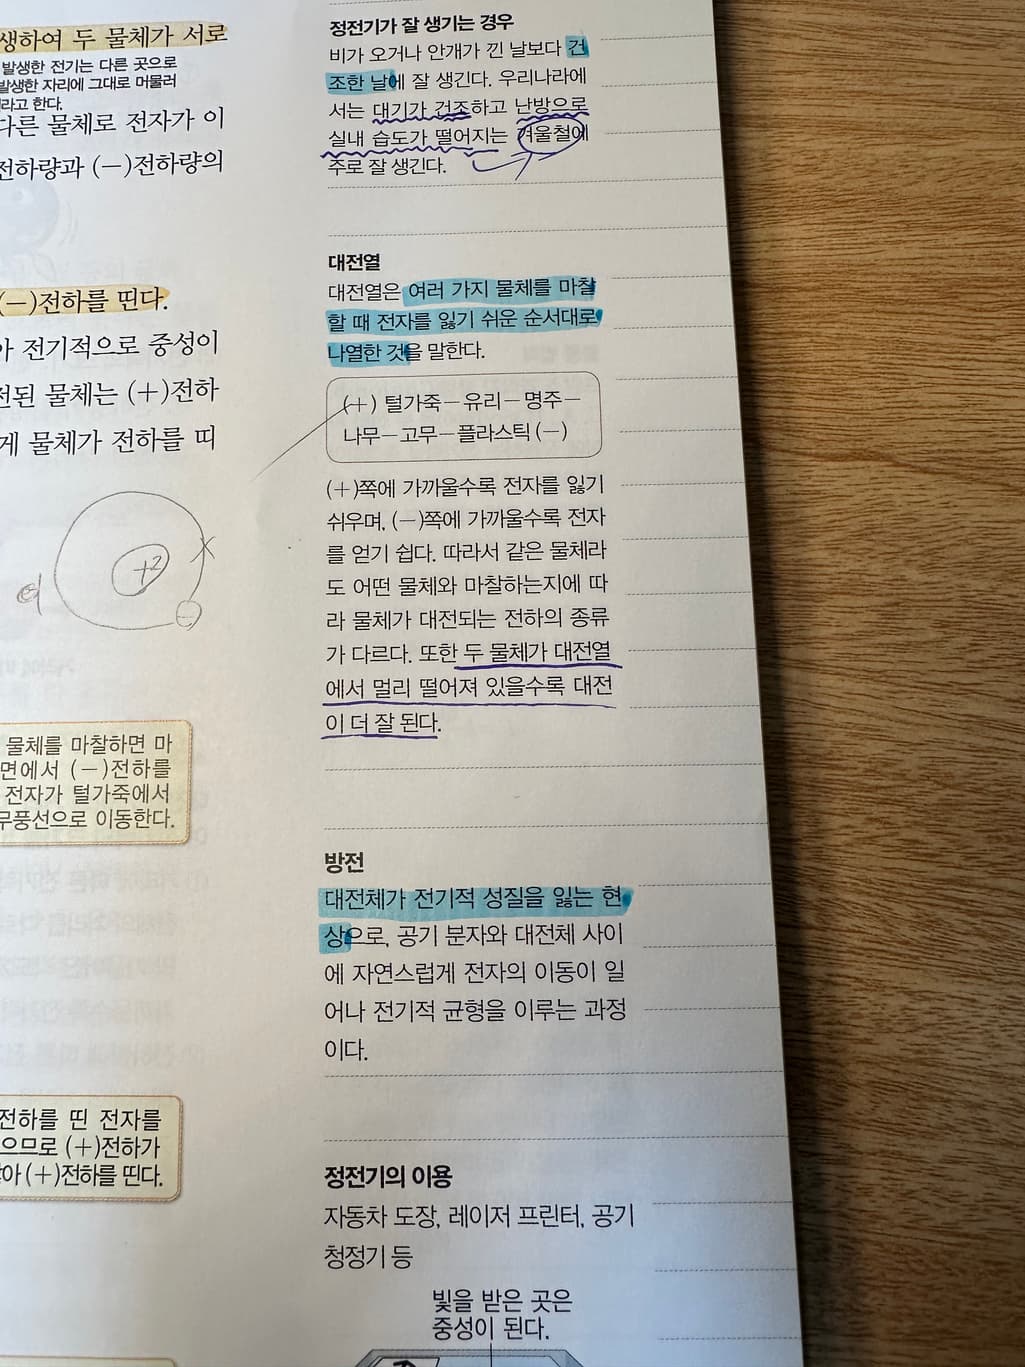 생하여 두 물체가 서로
발생한 전기는 다른 곳으로
발생한 자리에 그대로 머물러
라고 한다.
다른 물체로 전자가 이
전하량과 (－)전하량의
(－)전하를 띤다.
전기적으로 중성이
전된 물체는 (＋)전하
게 물체가 전하를 띠
+2
물체를 마찰하면 마
면에서 (－)전하를
전자가 털가죽에서
무풍선으로 이동한다.
전하를 띤 전자를
으므로 (＋)전하가
아 (＋)전하를 띤다.
정전기가 잘 생기는 경우
비가 오거나 안개가 낀 날보다 건
조한 날에 잘 생긴다. 우리나라에
서는 대기가 건조하고 난방으로
실내 습도가 떨어지는 겨울철에
주로 잘 생긴다.
대전열
대전열은 여러 가지 물체를 마찰
할 때 전자를 잃기 쉬운 순서대로
나열한 것을 말한다.
(＋) 털가죽－유리－명주－
나무－고무－플라스틱 (－)
(＋)쪽에 가까울수록 전자를 잃기
쉬우며, (－)쪽에 가까울수록 전자
를 얻기 쉽다. 따라서 같은 물체라
도 어떤 물체와 마찰하는지에 따
라 물체가 대전되는 전하의 종류
가 다르다. 또한 두 물체가 대전열
에서 멀리 떨어져 있을수록 대전
이 더 잘 된다.
방전
대전체가 전기적 성질을 잃는 현
상으로, 공기 분자와 대전체 사이
에 자연스럽게 전자의 이동이 일
어나 전기적 균형을 이루는 과정
이다.
정전기의 이용
자동차 도장, 레이저 프린터, 공기
청정기 등
빛을 받은 곳은
중성이 된다.